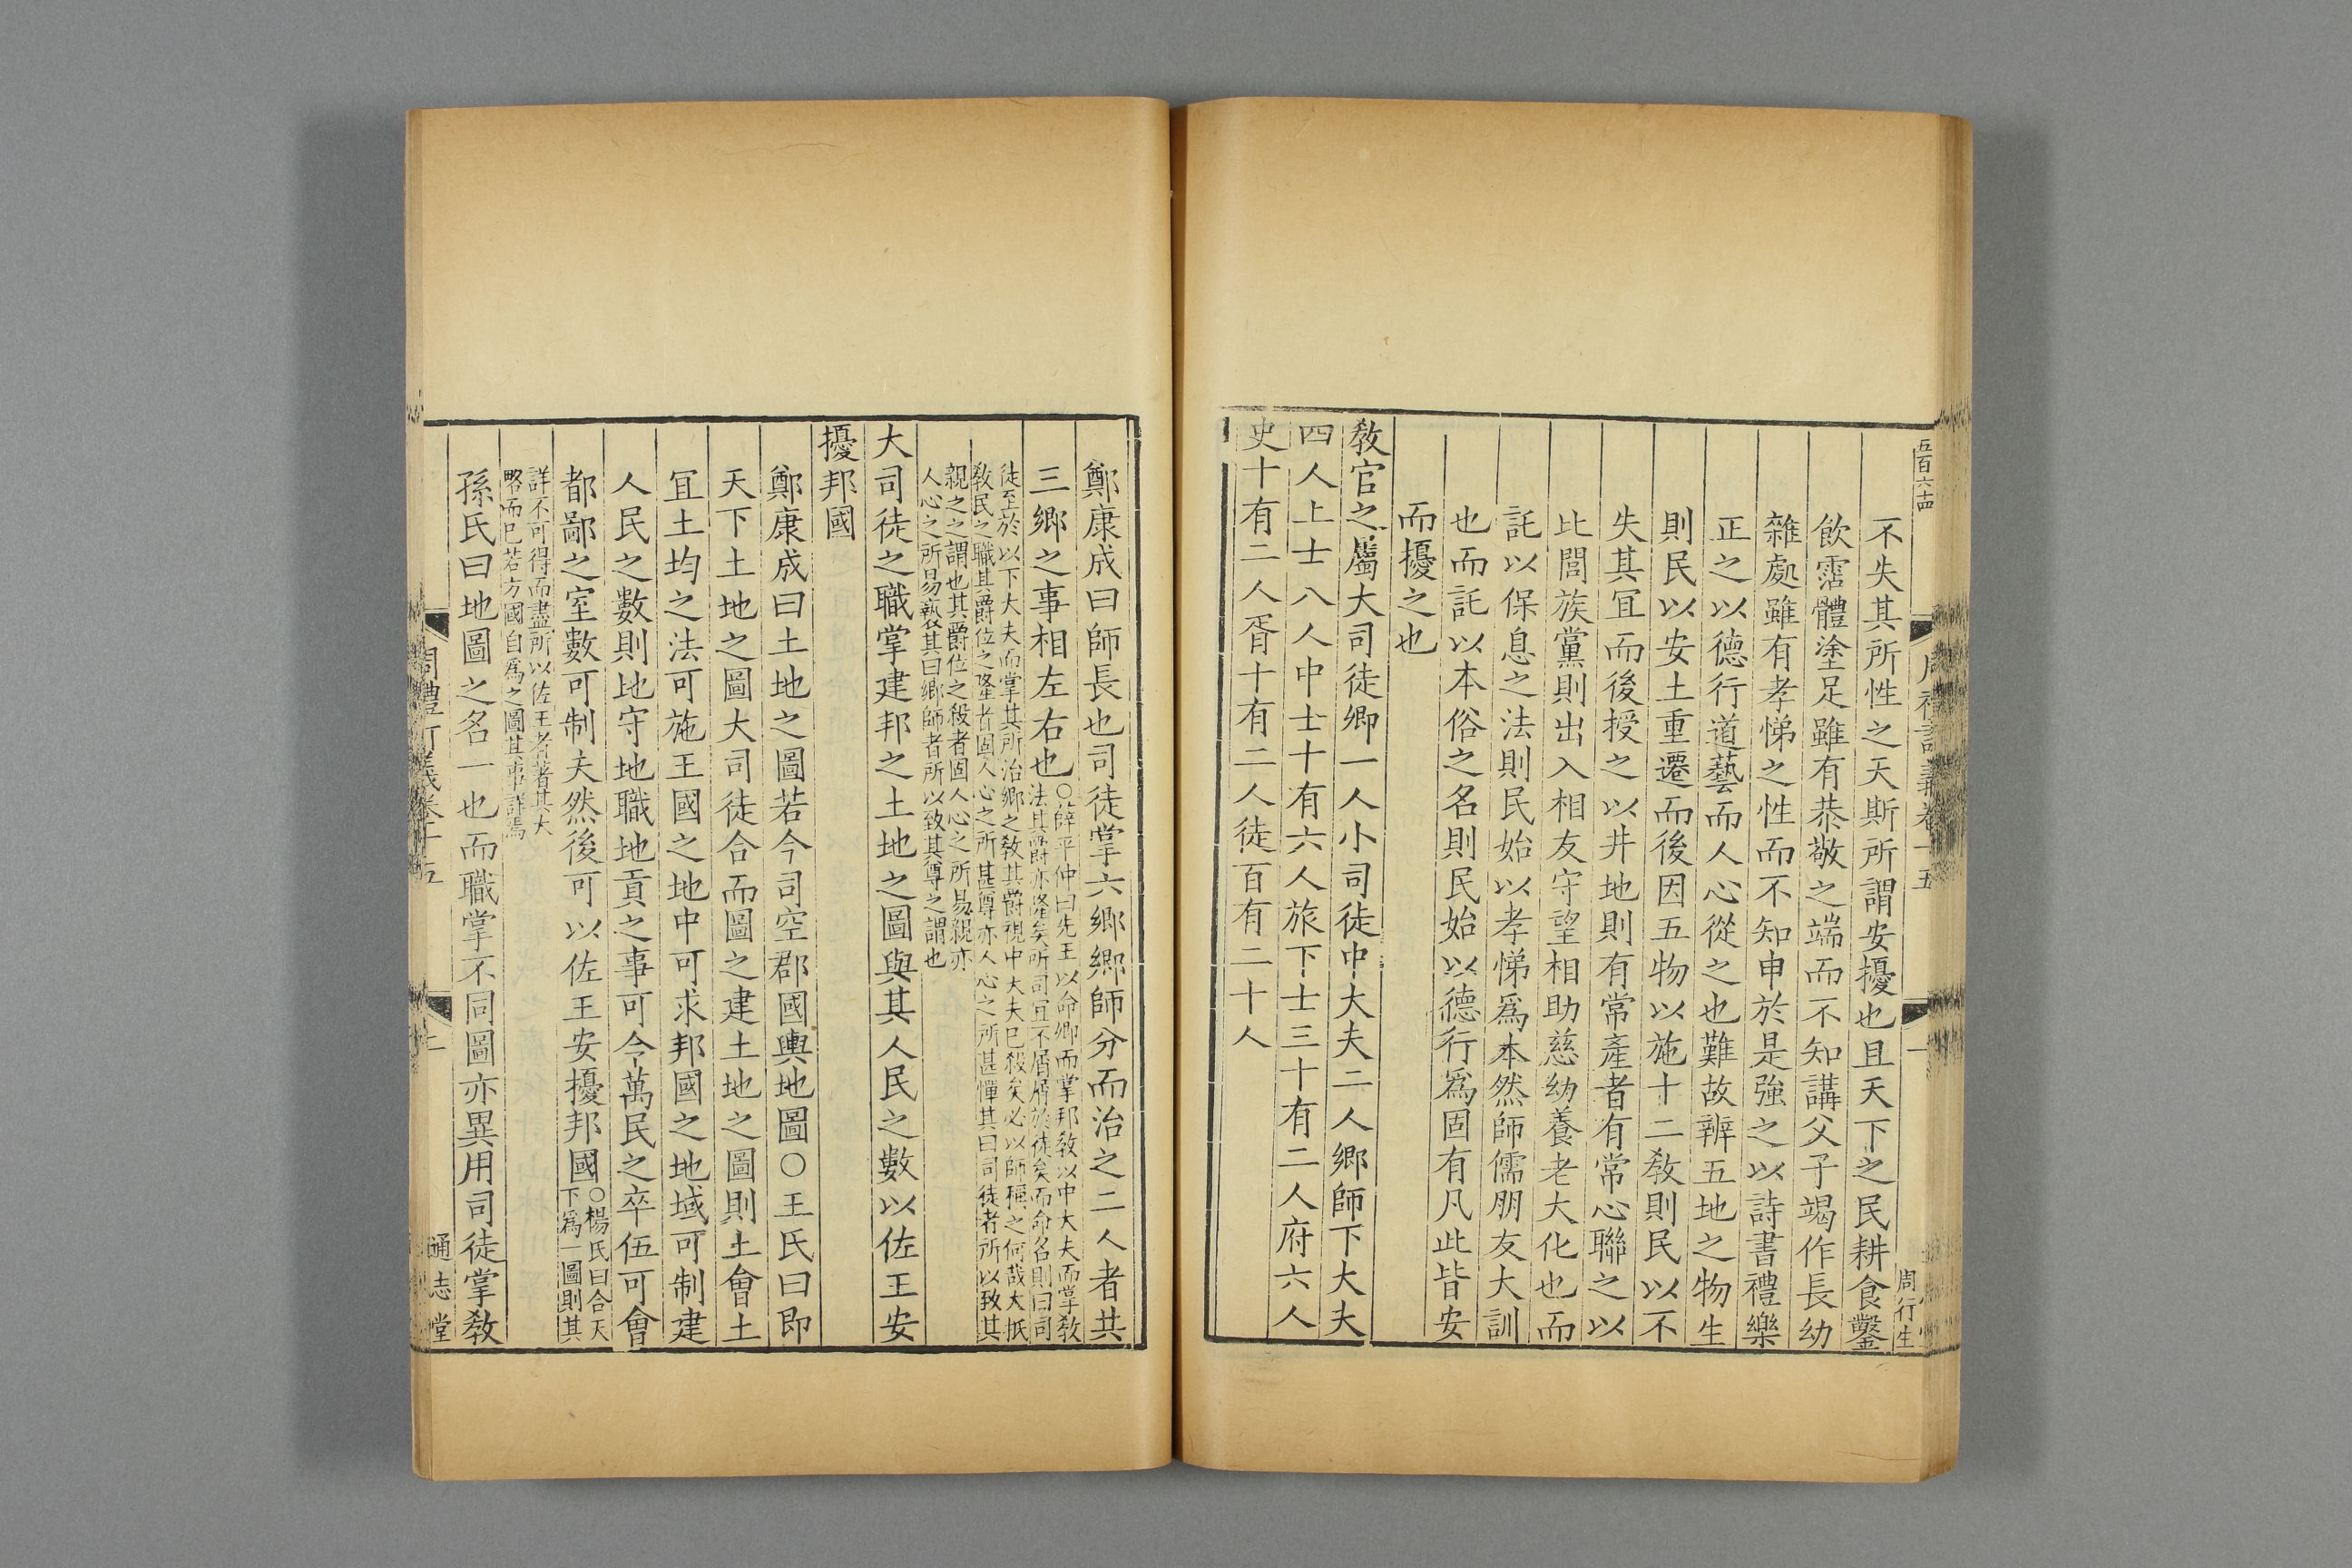 五百六十四
周禮訂義卷十五
一
周行生
不失其所性之天斯所謂安擾也且天下之民耕食鑿
飲霑體塗足雖有恭敬之端而不知講父子竭作長幼
雜處雖有孝悌之性而不知申於是強之以詩書禮樂
正之以德行道藝而人心從之也難故辨五地之物生
則民以安土重遷而後因五物以施十二教則民以不
失其宜而後授之以井地則有常產者有常心聯之以
比閭族黨則出入相友守望相助慈幼養老大化也而
託以保息之法則民始以孝悌爲本然師儒朋友大訓
也而託以本俗之名則民始以德行爲固有凡此皆安
而擾之也
教官之屬大司徒卿一人小司徒中大夫二人鄉師下大夫
四人上士八人中士十有六人旅下士三十有二人府六人
史十有二人胥十有二人徒百有二十人
鄭康成曰師長也司徒掌六鄉鄉師分而治之二人者共
三鄉之事相左右也○薛平仲曰先王以命卿而掌邦教以中大夫而掌教
法其爵亦隆矣所司宜不屑屑於徒矣而命名則曰司
徒至於以下大夫而掌其所治鄉之教其爵視中大夫已殺矣必以師稱之何哉大抵
教民之職其爵位之隆者固人心之所甚尊亦人心之所甚憚其曰司徒者所以致其
親之之謂也其爵位之殺者固人心之所易親亦
人心之所易褻其曰鄉師者所以致其尊之謂也
大司徒之職掌建邦之土地之圖與其人民之數以佐王安
擾邦國
鄭康成曰土地之圖若今司空郡國輿地圖○王氏曰即
天下土地之圖大司徒合而圖之建土地之圖則土會土
宜土均之法可施王國之地中可求邦國之地域可制建
人民之數則地守地職地貢之事可令萬民之卒伍可會
都鄙之室數可制夫然後可以佐王安擾邦國○楊氏曰合天
下爲一圖則其
詳不可得而盡所以佐王者著其大
略而已若方國自爲之圖其事詳焉
孫氏曰地圖之名一也而職掌不同圖亦異用司徒掌教
周禮訂義卷十五
二
通志堂